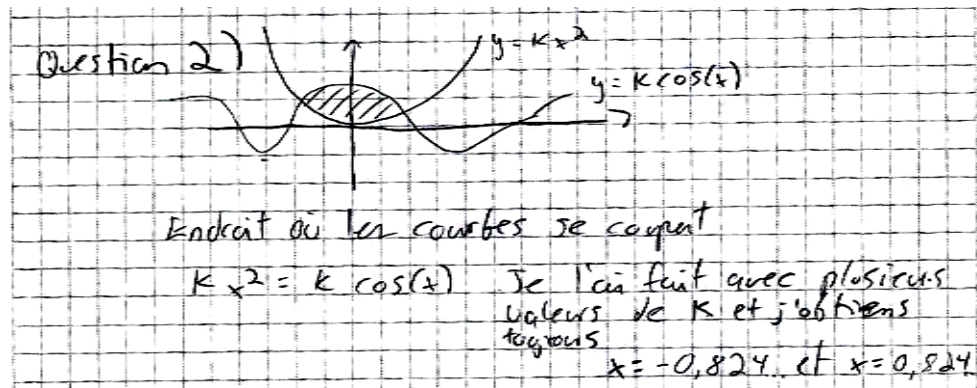 Question 2)
y = kx²
y = k cos(x)
Endroit où les courbes se coupent
kx² = k cos(x) Je l'ai fait avec plusieurs
valeurs de k et j'obtiens
toujours
x = -0,824.. et x = 0,824